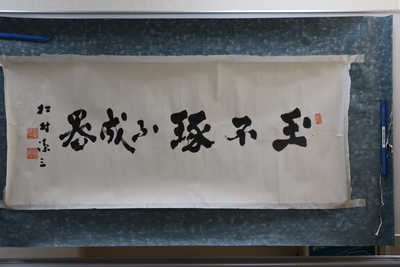 玉不琢不成器
松村潔三